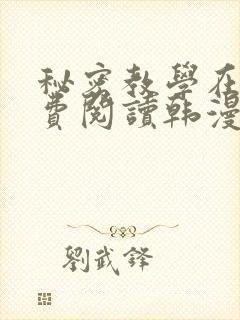 秘密教學在
費閱讀韩漫
劉武鋒